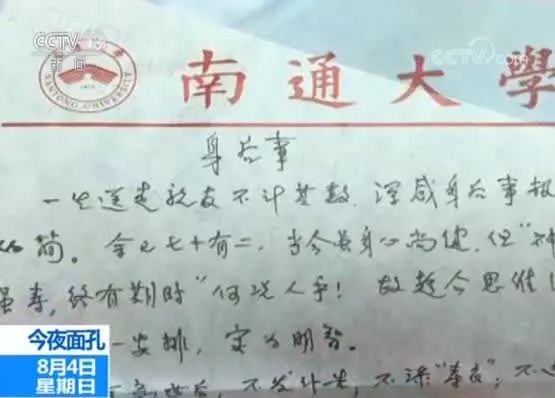 CCTV
新闻
NANTONG UNIVERSITY
南通大學
身后事
一生送走敌友不计其数,深感身后事
简。余已七十有二,当今虽身心尚健,但"神
虽寿,终有期时"何况人乎!故趁今思维
一安排,实为明智。
后,不发讣告,不"寿衣";不
今夜面孔
8月4日
星期日